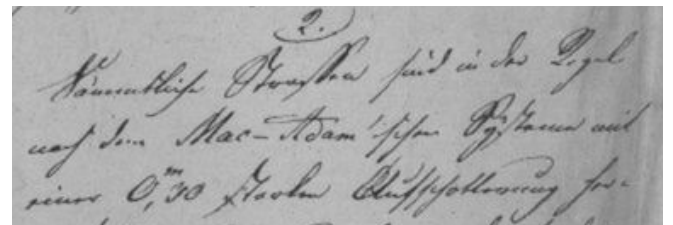 2.
Sämmtliche Strassen sind in der Regel
nach dem Mac-Adam'schen Systeme mit
einer 0,ᵐ30 starken Aufschotterung her-